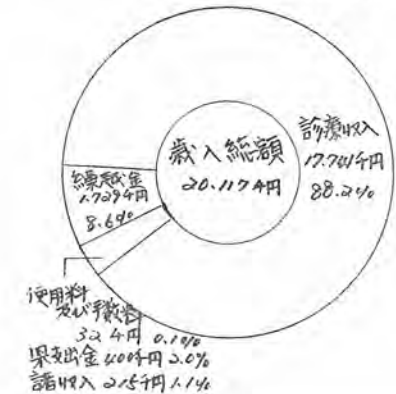 歳入総額
20.117千円
診療収入
17.741千円
88.2%
繰越金
1.729千円
8.6%
使用料
及び手数料
32千円 0.1%
県支出金 400千円 2.0%
諸収入 215千円 1.1%